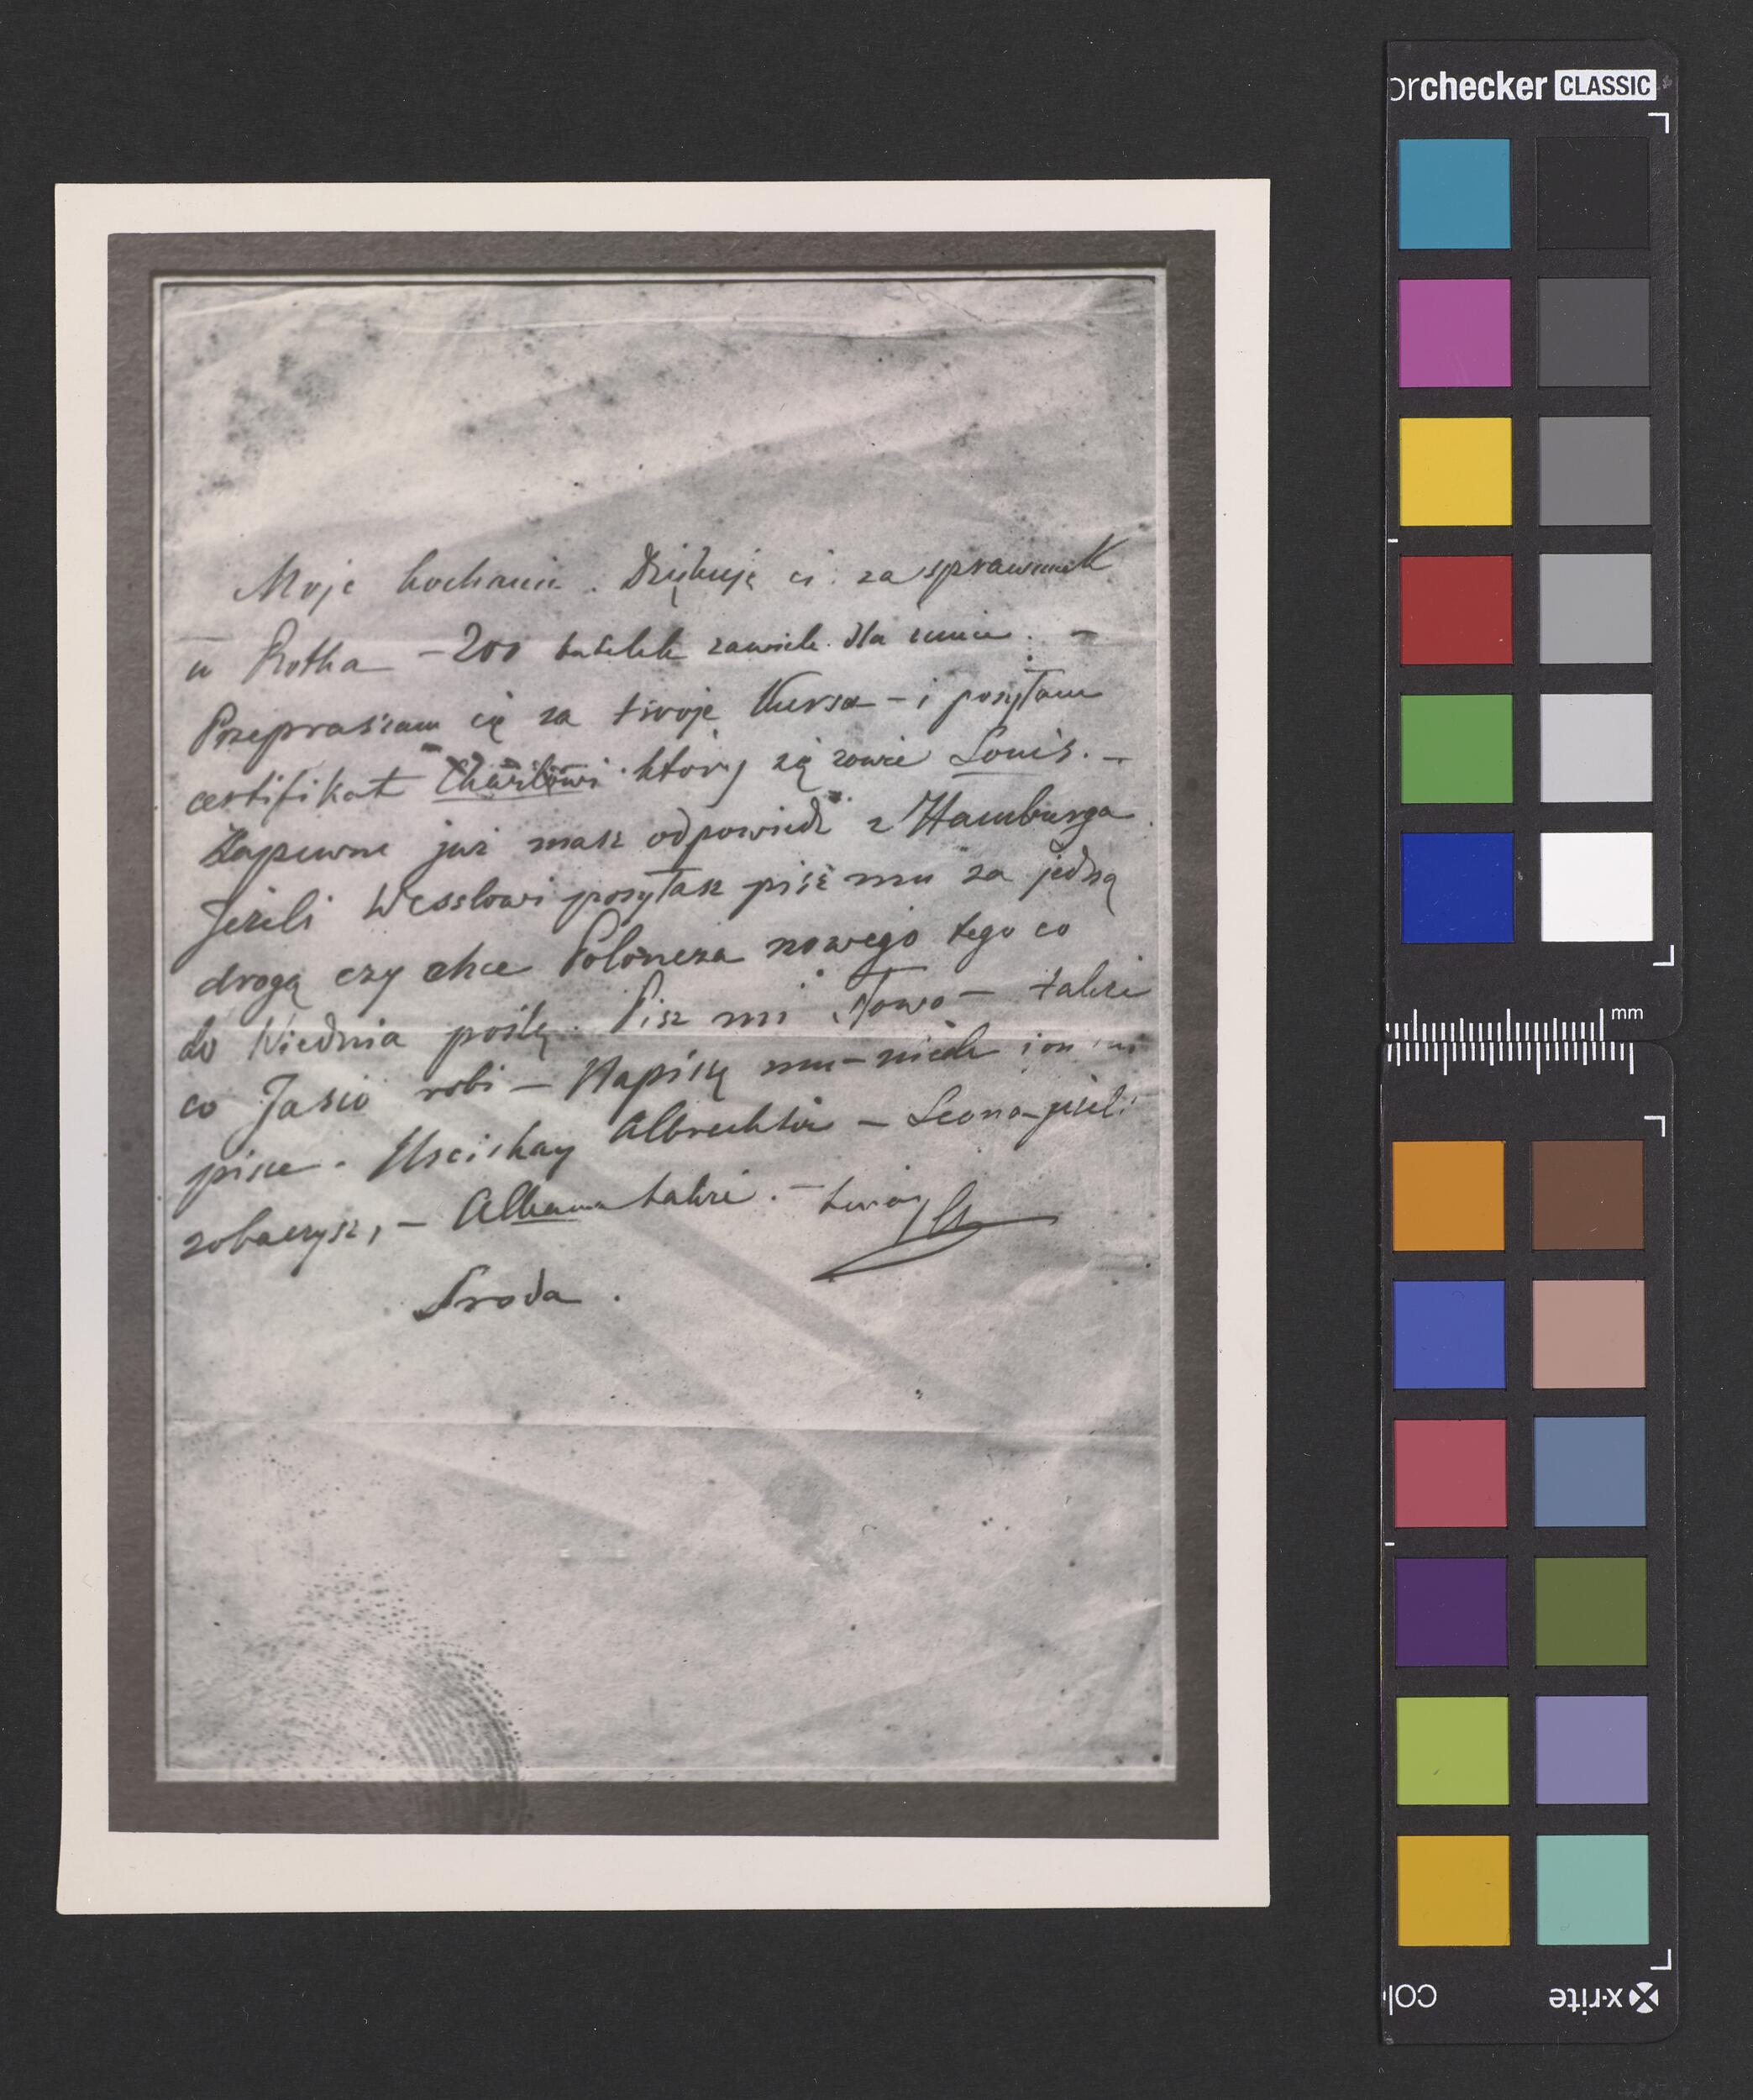 orchecker CLASSIC
Moje kochanie. Dziękuję ci za sprawunek
u Rotha – 200 butelek zawiele dla mnie. –
Przepraszam cię za twoje Kursa – i posyłam
certifikat Charlowi który się zowie Louis. –
Zapewne już masz odpowiedź z Hamburga
Jeżeli Wesslowi posyłasz pisz mu za jedną
drogą czy chce Poloneza nowego tego co
do Wiednia poślę. Pisz mi słowo – także
co Jasio robi – Napiszę mu – niech i on mi
pisze. Uściskay Albrechta – Leona jeżeli
zobaczysz, – Albana także. – twój
Sroda.
mm
x·rite
col